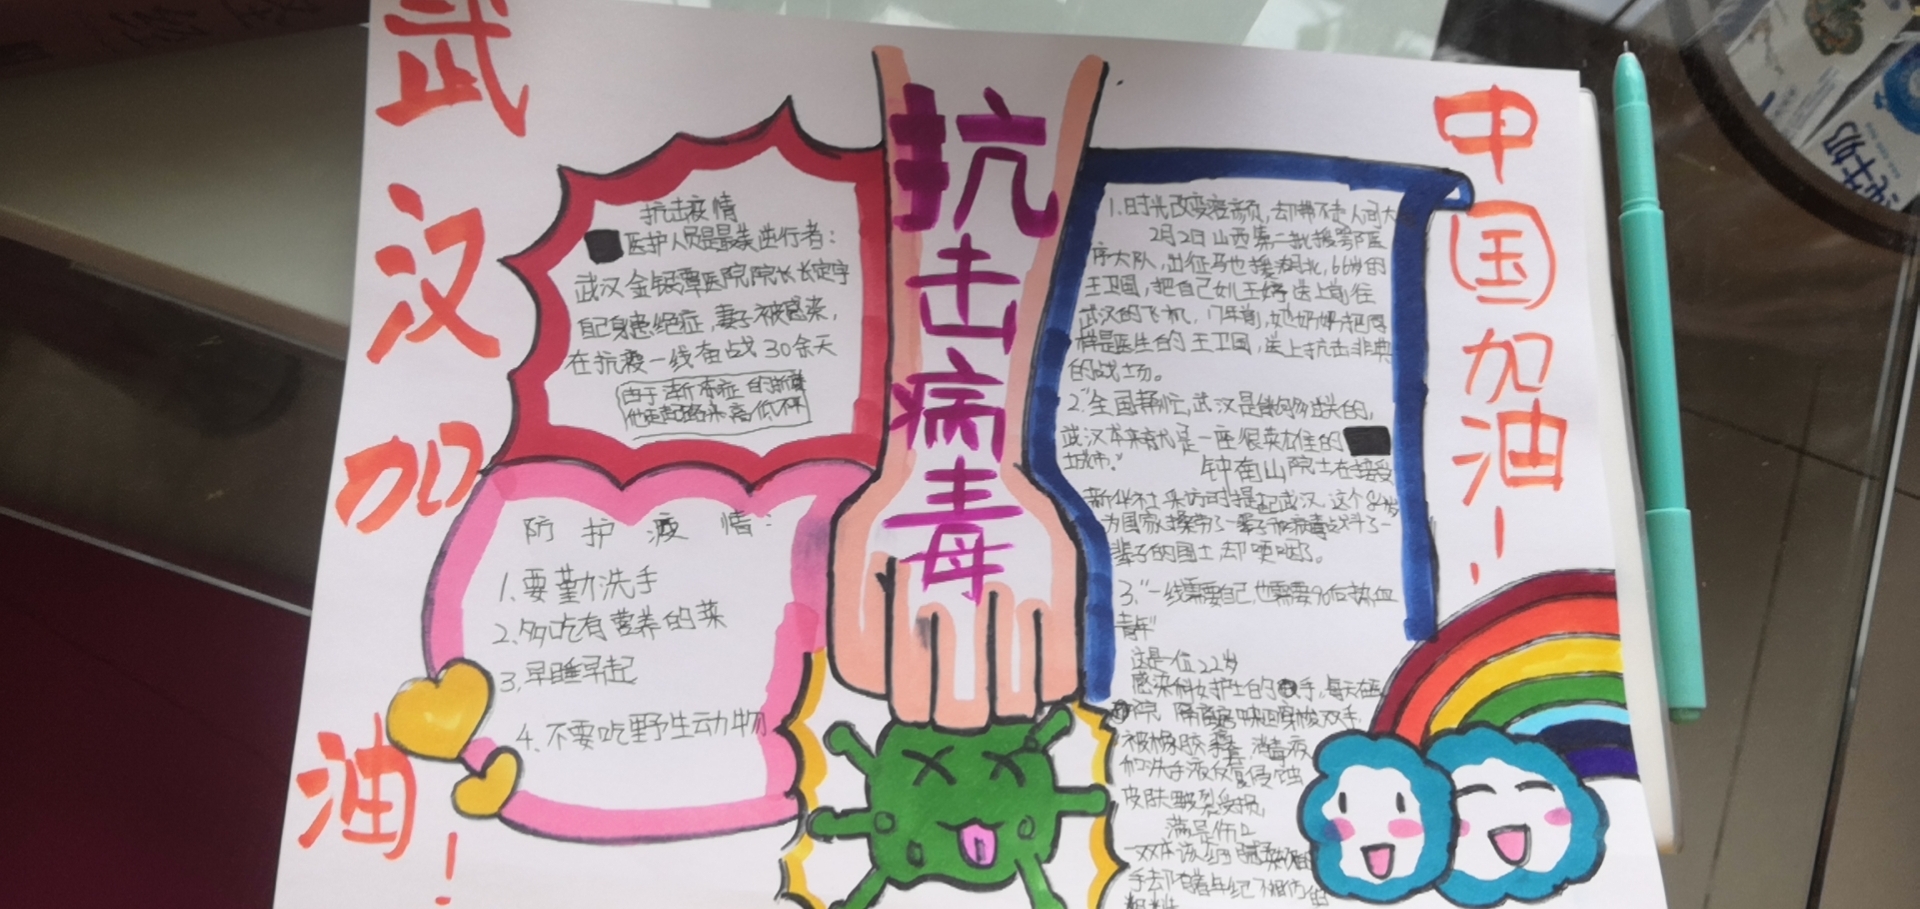 武汉加油！
抗击病毒
中国加油！
抗击疫情
医护人员是最美逆行者：
武汉金银潭医院院长张定宇
自己身患绝症，妻子被感染，
在抗疫一线奋战30余天
由于渐冻症的
他走起路来高低不
防护疫情：
1.要勤洗手
2.多吃有营养的菜
3.早睡早起
4.不要吃野生动物
1.时光改变容颜，却带不走人间大
2月2日山西第二批援鄂医
疗大队，出征驰援湖北，66岁的
王卫国，把自己女儿王婷送上前往
武汉的飞机，17年前，她妈妈把同
样是医生的王卫国，送上抗击非典
的战场。
2."全国帮忙，武汉是能够过关的，
武汉本来就是一座很英雄的
城市。"
钟南山院士在接受
新华社采访时提起武汉，这个84岁
为国家操劳了一辈子和病毒战斗了一
辈子的国士却哽咽了。
3."一线需要自己，也需要90后热血
青年"
这是一位22岁
感染科女护士的手，每天在医
院隔离病中来回穿梭双手
被橡胶手套，消毒液
和洗手液反复侵蚀
皮肤皲裂受损
满是伤口
一双本该细腻柔软的
手却有着年纪不相符的
粗糙
纯牛奶